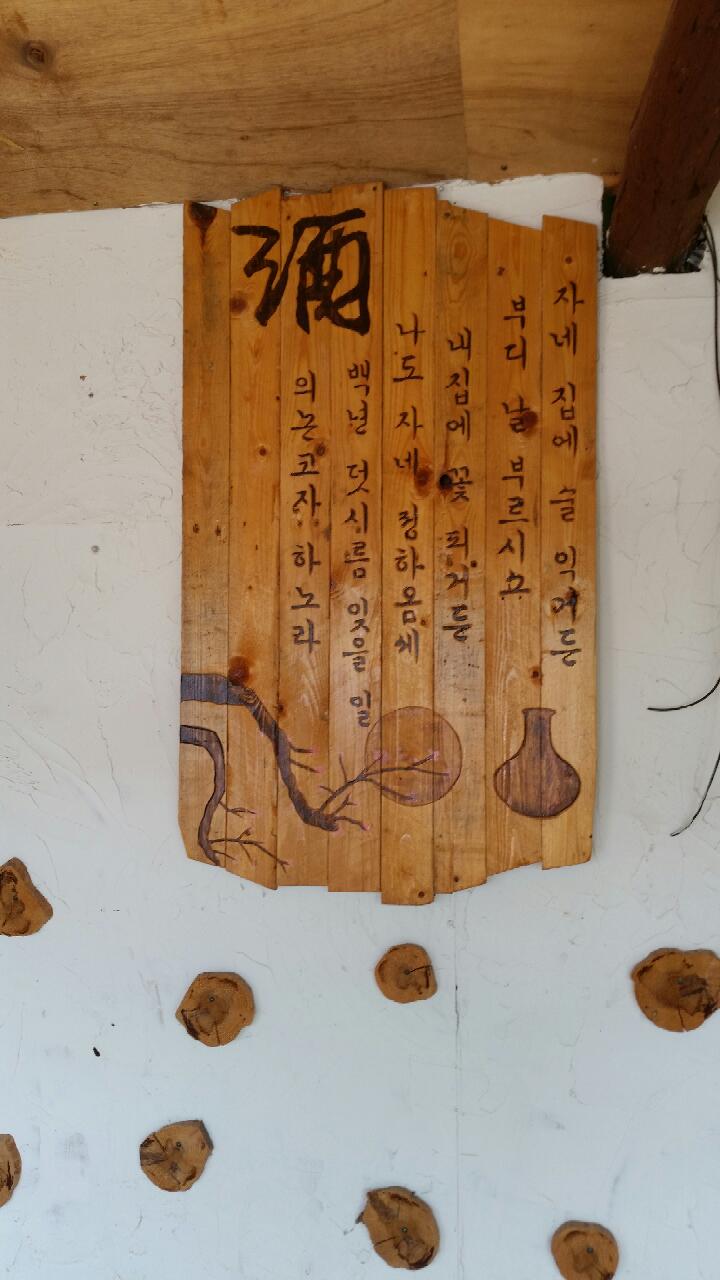 자네 집에 술 익거든
부디 날 부르시소
내집에 꽃 피거든
나도 자네 청하옴세
백년 덧시름 잊을 일
의논코자 하노라
彌